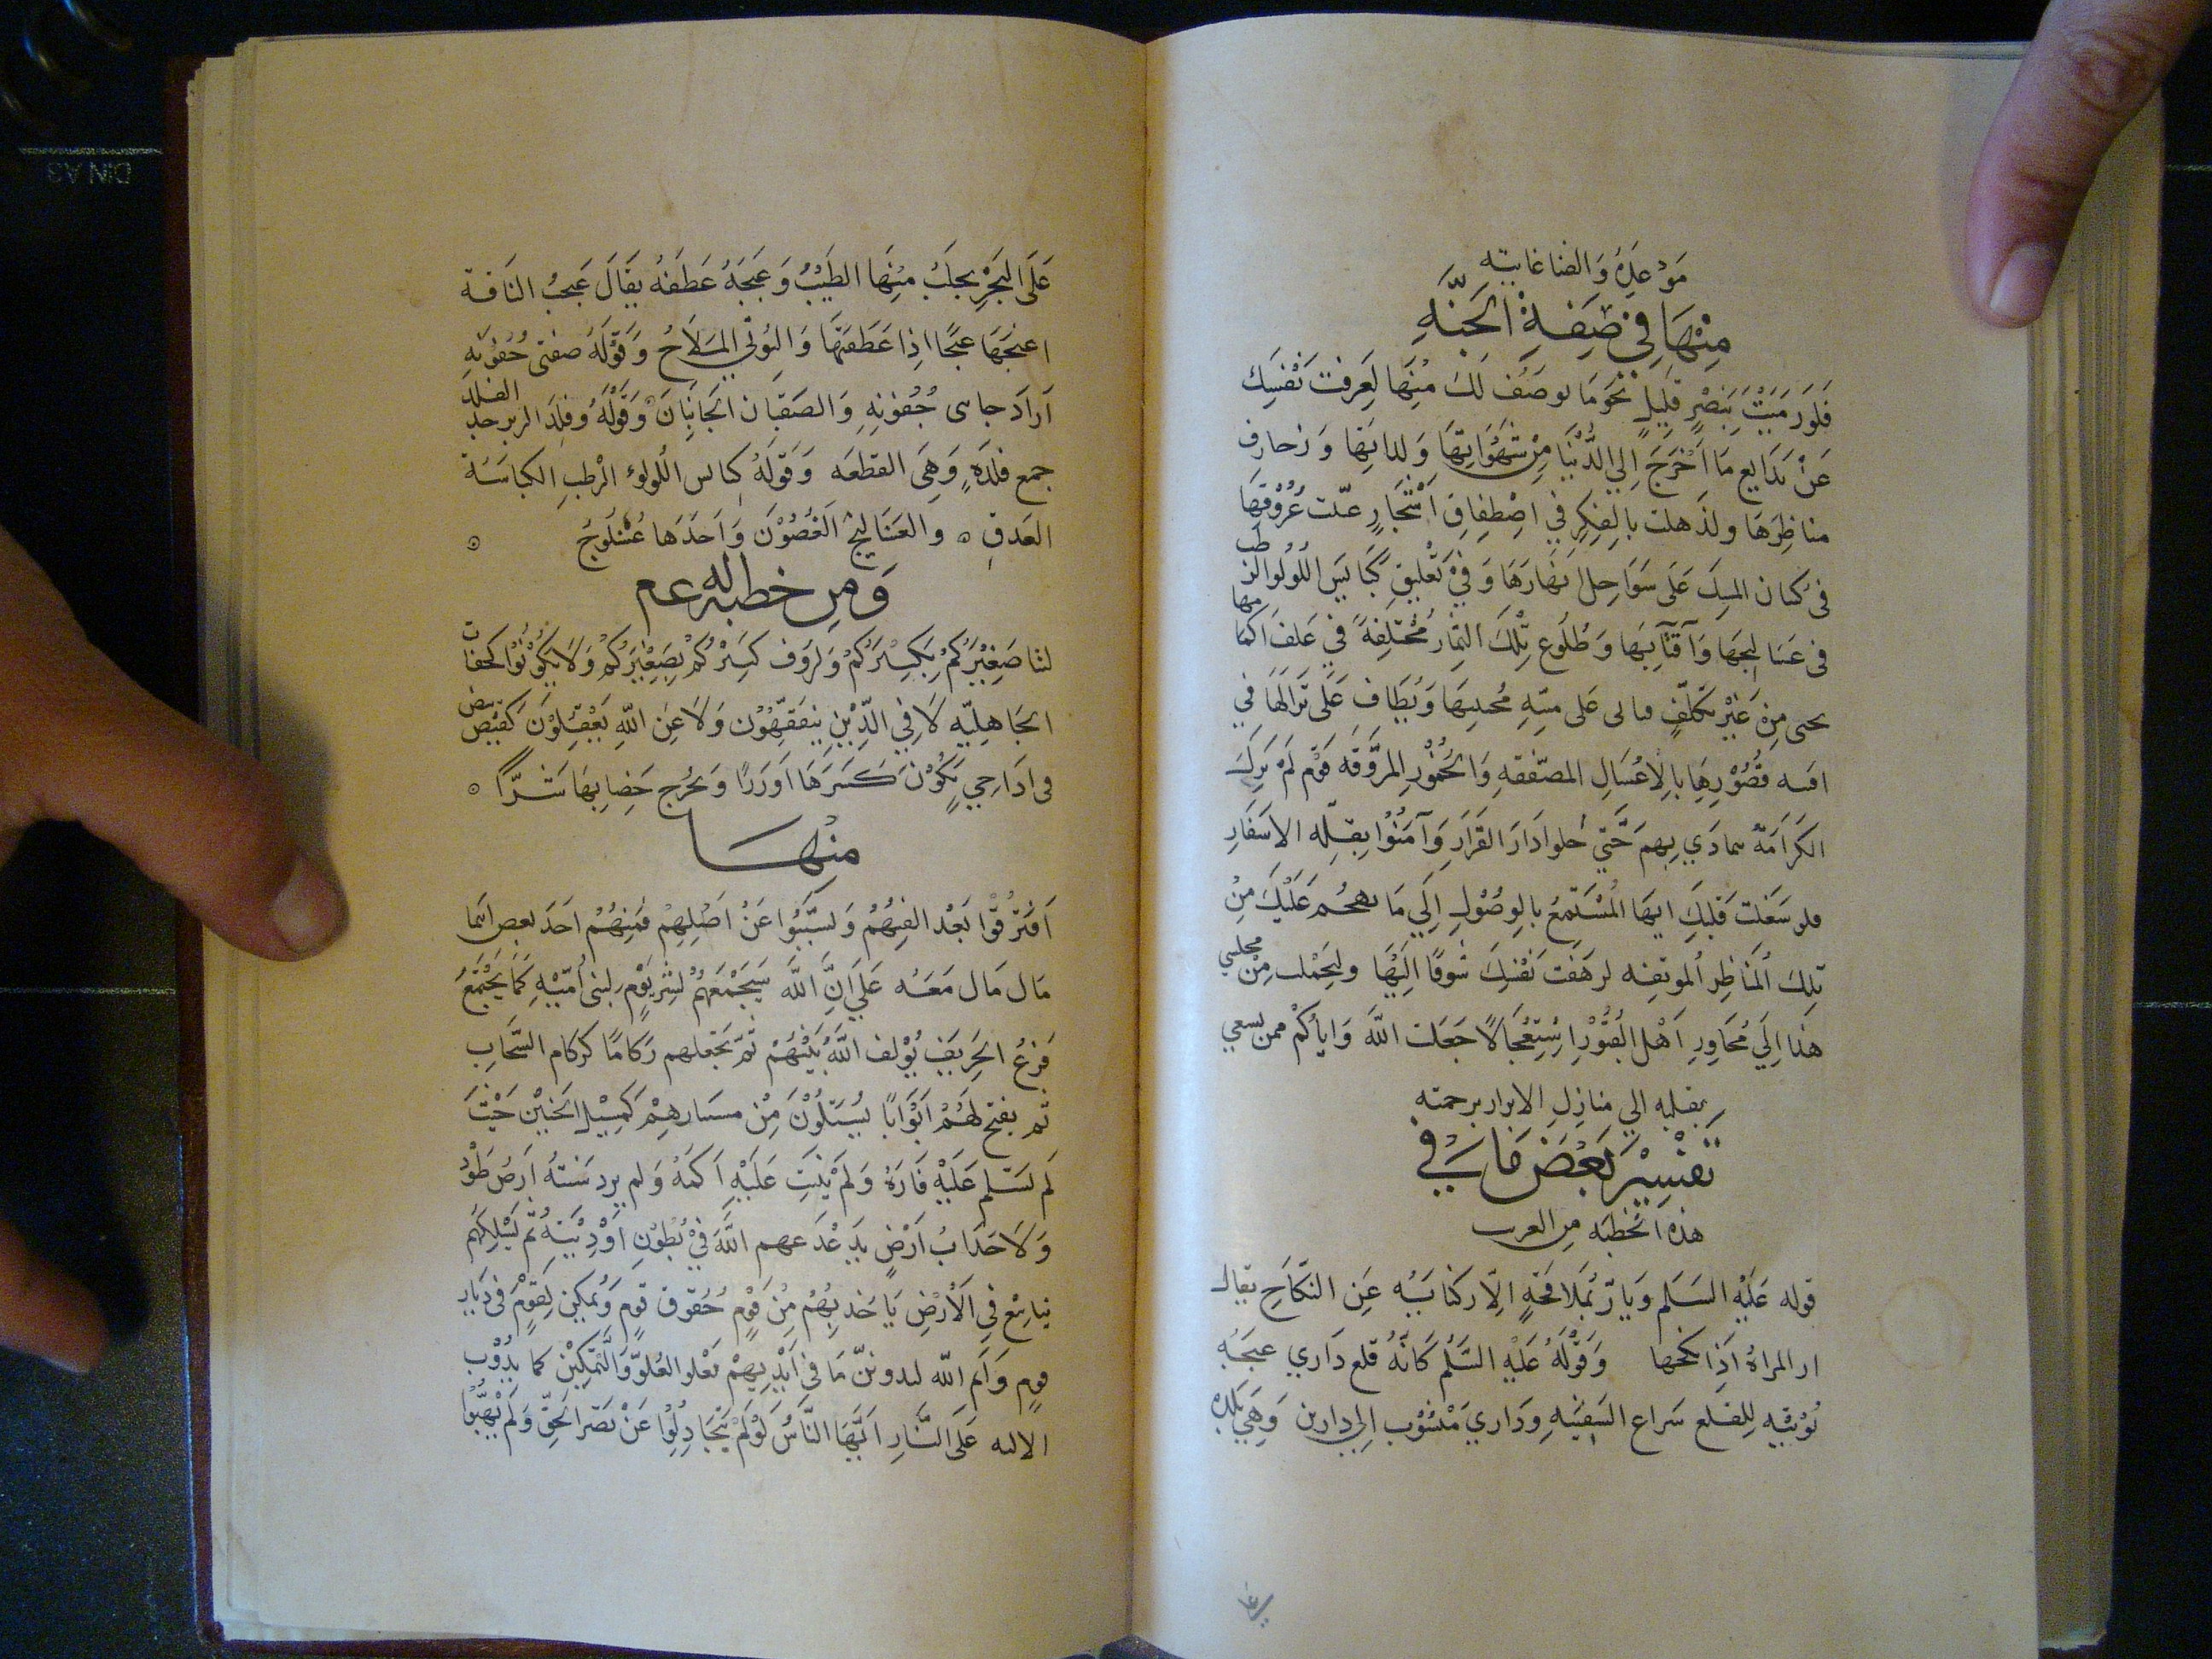 مَوْعِدَهُ وَالفنا غايته
مِنْهَا فِي صِفَةِ الجَنَّةِ
فَلَو رَمَيْتَ بِبَصَرِ قَلْبِكَ نَحْوَ مَا يوصَفُ لَكَ مِنْهَا لَعَزفت نَفْسِكَ
عَنْ بَدَايِع مَا اُخْرِجَ اِلي الدُّنْيَا مِنْ شَهَوَاتِهَا وَلداتِهَا وَزخارف
مناظِرِهَا ولذَهلت بالفِكِرِ فِي اصْطِفَاقِ اَشْجَارٍ غيّبت عُرُوْقِهَا
فى كثبان المسِكَ عَلَى سَوَاحِل انهَارِهَا وَفِيْ تَعْلِيْقِ كَبَايسِ اللُولُوا الرطب
فى عَسَالِيجِهَا وَآفْنَانِهَا وَطُلُوع تِلْكَ الثِمَار مُخْتَلِفَةً في غلف اكمامها
تحنى مِنْ غَيْرِ تَكَلّفٍ فتاتى عَلى منيَةِ مُجتنِيهَا وَيُطَاف عَلَى نُزّالِهَا فِي
افنيه قُصُوْرِهَا بِالاعْسَالِ المصَفّقه وَالخُمُوْرِ المروّقَه قَوْم لَمْ تزلِ
الكَرَامَةُ تتمادَي بِهِم حَتَّي حلوا دَارَ القَرَارِ وَآمَنُوْا نقلَه الاسَفَارِ
فلو شغلت قَلبَكَ ايهَا المُسْتَمِعُ بالوصُوْل اِلَي مَا يهجُم عَلَيْكَ مِنْ
تِلكَ المَنَاظِر المونِقه لزهَقت نَفْسُكَ شَوقًا اليَهَا ولتَحَمّلت مِنْ مجلسي
هذا اِلَي مُجَاورِ اَهْل القُبُوْرِ اسْتِعْجَالاً جَعَلَنا اللَّه وَاياكُمْ ممن يسعي
بقلبه الي منازِل الابرار برحمته
تَفْسِيْر بَعْضِ مَا في
هذه الخطبَه مِن الغرب
قوله عَلَيْهِ السَلَم وَيارّ بُمَلاقَحَةٍ الارّ كنايَه عَنِ النّكاح يقال
ار المراةُ اذَِا نكحها وَقَوْلُهُ عَليْه السَّلم كَانّهُ قلع دَاري عنجَهُ
نُوْتيْه القِلع شراع السَفِيْنه وَدَاري مَنْسُوْب اِلي دارين وَهِي بَلده
عَلَى البَحْرِ يجلَبُ مِنْهَا الطِيْبُ وَعَنَجَهُ عَطَفَهُ يقَالَ عَنجتُ النَاقَة
اعنجُهَا عنجًا اذِا عَطَفَتَهَا وَالنُوتي المَلاَحُ وَقَوْلُهُ صفتى جُفُوْنهِ
اَرَادَ جانبى جُفُوْنِهِ وَالصَفتَان الجَانِبَان وَقَوْلُهُ وفلِذَ الزبرجد الفلذ
جمع فلذَةٍ وَهِىَ القطعَه وَقولهُ كبائس اللُولوء الرّطبِ الكبَاسَةُ
العَذقِ ۞ والعَسَاليْجُ الغُصُوْنُ وَاحَدهَا عُسْلُوجُ ۞
وَمِن خطبه له عم
لتاسَ صَغِيْرُكُمْ بِكَبِيْركُمْ وَلروف كَبِيْرُكُمْ بِصَغِيْرِكُمْ وَلاَ تَكُوْنُوْا كجفات
الجَاهِليّه لاَ فِي الدِّيْنِ يتَفَقّهُوْن وَلاَ عَنِ اللّه يَعْقِلوْنَ كَقَيض بيض
فى ادَاحِي يكُوْن كَسْرهَا وِزرًا وَيخرج حَضانهَا شَرًّا ۞
منهَا
اَفتَرَقُوْا بَعْدَ الفِتِهُمْ وَتشتّتوا عَنْ اَصْلِهِمْ فمِنْهُمْ اخذَ بغصن اينما
مَال مَال مَعَهُ عَلَي اِنَّ اللَّه سَيَجْمَعُهُمْ لِشَرِّ يَوْمٍ لبنى اُمَيّه كَمَا يَجْتَمَعُ
قزعُ الخَرِيفِ يُؤلف اللَّهُ بَيْنَهُمْ ثمّ يجعلهم رُكامًا كرُكام السّحَابِ
ثم يفتَح لَهُمْ اَبْوَابًا يسِيْلُوْنَ مِنْ مستثارهِمْ كسَيْل الجنتيْن حَيْث
لَم تسَلم عَلَيْهِ قارَهُ وَلَمْ يَثْبُت عَلَيْهِ اَكمَهُ وَلم يرد سَنَنَهُ رَصُّ طَوْد
وَلاَ حَدَابُ اَرْضٍ يذَعْذَعهم اللَّهَ فِيْ بُطُوْنِ اَوْدِيَتِهِ ثم يَسْلكهُم
ينابيع فِي الاَرْضِ يَاخذ بِهُمْ مِنْ قَوْمٍ حُقوق قومٍ وَيُمكِن لِقَوْمٍ فى دِيَار
قومٍ وَايَم اللّه ليذوبنّ مَا في اَيْدِيهِمْ بَعْد العُلوّ وَالتَّمكِيْن كما يذُوْب
الاليه عَلَى النَّارِ اَيُّهَا النَّاسُ لَوْ لَمْ تتخَاذِلُوْا عَنْ نَصْرِ الحَقّ وَلَم تهِنُوْا